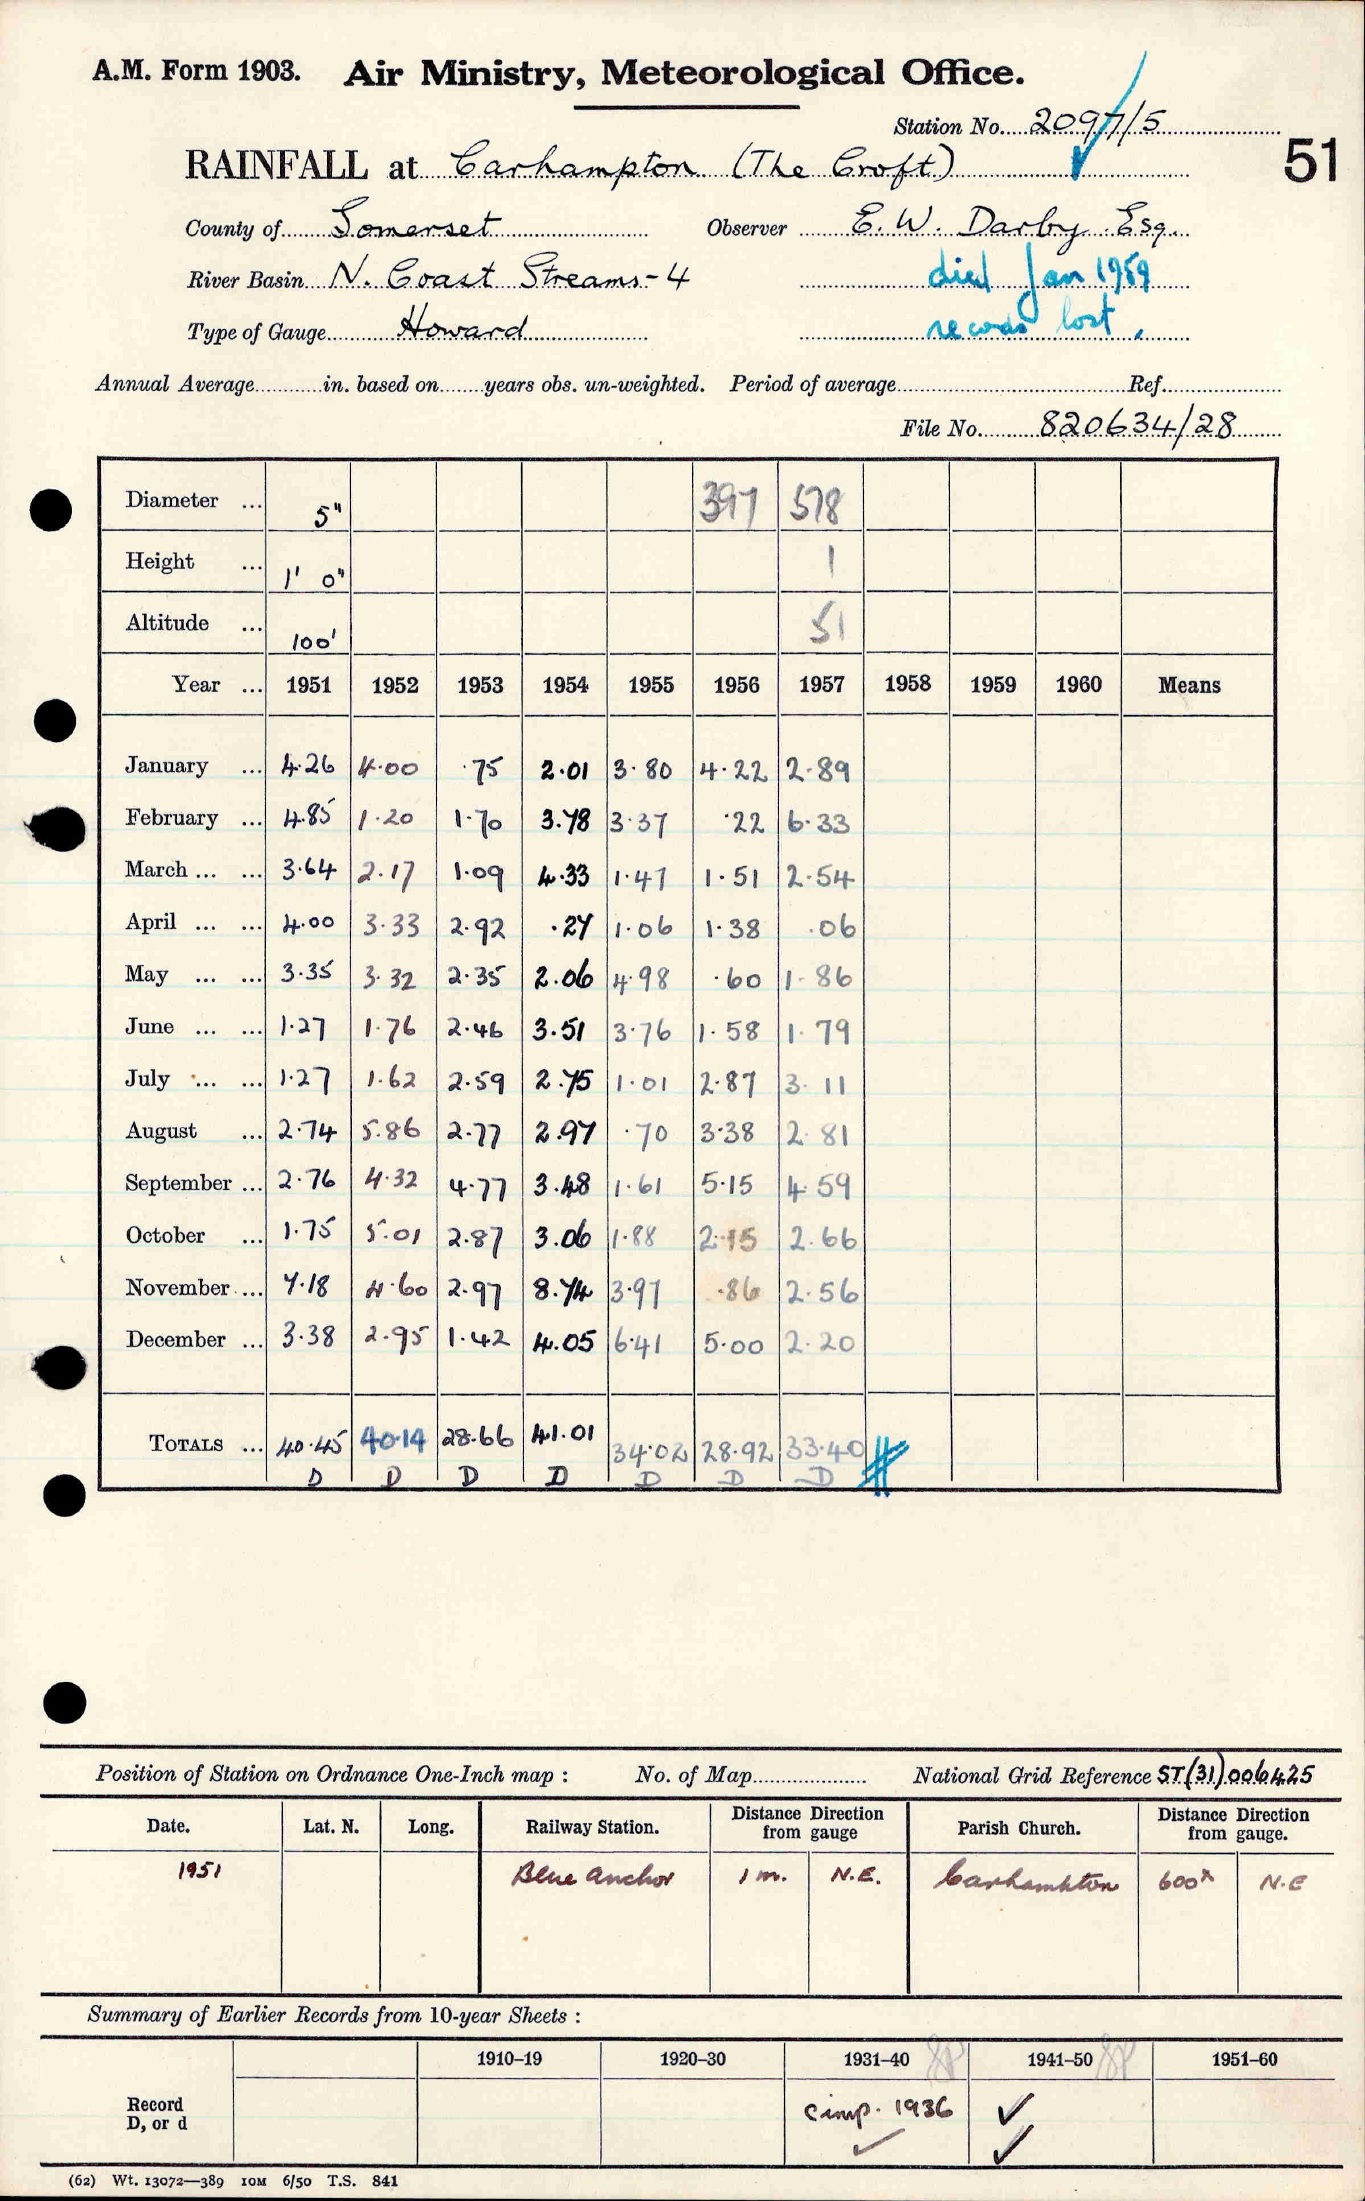 A.M. Form 1903. Air Ministry, Meteorological Office.
Station No. 2097/5
51
RAINFALL at Carhampton (The Croft)
County of Somerset Observer E. W. Darby Esq.
River Basin N. Coast Streams-4 died Jan 1959
Type of Gauge Howard records lost.
Annual Average in. based on years obs. un-weighted. Period of average Ref.
File No. 820634/28
Diameter ... 5" 397 578
Height ... 1' 0" 1
Altitude ... 100' 51
Year ... 1951 1952 1953 1954 1955 1956 1957 1958 1959 1960 Means
January ... 4.26 4.00 .75 2.01 3.80 4.22 2.89
February ... 4.85 1.20 1.70 3.78 3.37 .22 6.33
March ... ... 3.64 2.17 1.09 4.33 1.47 1.51 2.54
April ... ... 4.00 3.33 2.92 .27 1.06 1.38 .06
May ... ... 3.35 3.32 2.35 2.06 4.98 .60 1.86
June ... ... 1.27 1.76 2.46 3.51 3.76 1.58 1.79
July ... ... 1.27 1.62 2.59 2.75 1.01 2.87 3.11
August ... 2.74 5.86 2.77 2.97 .70 3.38 2.81
September ... 2.76 4.32 4.77 3.48 1.61 5.15 4.59
October ... 1.75 5.01 2.87 3.06 1.88 2.15 2.66
November ... 7.18 4.60 2.97 8.74 3.97 .86 2.56
December ... 3.38 2.95 1.42 4.05 6.41 5.00 2.20
TOTALS ... 40.45 40.14 28.66 41.01 34.02 28.92 33.40
D D D D D D D
Position of Station on Ordnance One-Inch map : No. of Map National Grid Reference ST(31)006425
Date. Lat. N. Long. Railway Station. Distance Direction from gauge Parish Church. Distance Direction from gauge.
1951 Blue Anchor 1 m. N.E. Carhampton 600x N.E
Summary of Earlier Records from 10-year Sheets :
1910–19 1920–30 1931–40 1941–50 1951–60
Record
D, or d
comp. 1936 ✓
✓ ✓
(62) Wt. 13072—389 10M 6/50 T.S. 841